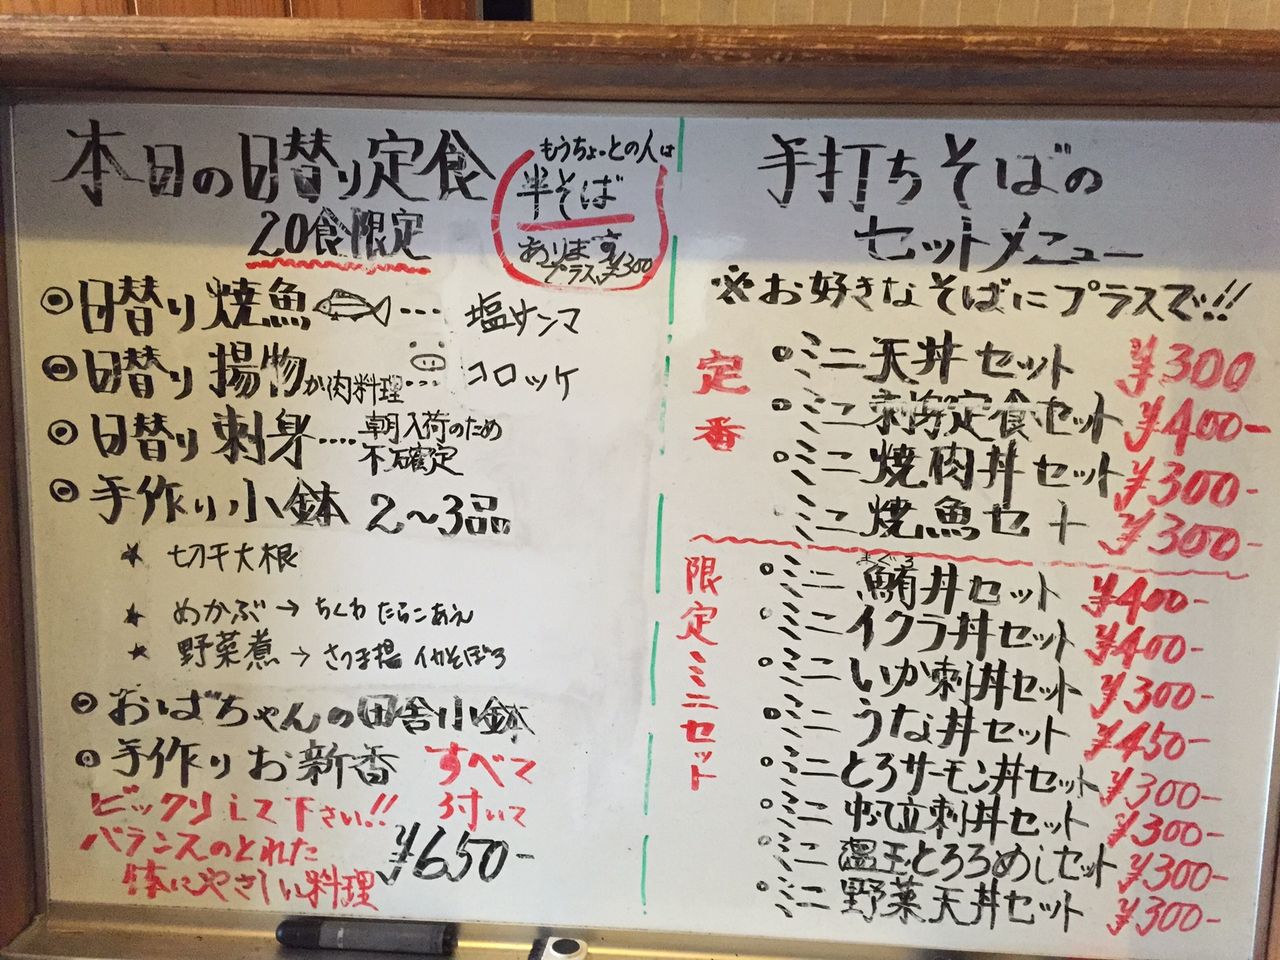 本日の日替り定食
20食限定
もうちょっとの人は
半そば
あります
プラス¥300
◎日替り焼魚・・・塩サンマ
◎日替り揚物か肉料理・・・コロッケ
◎日替り刺身・・・・朝入荷のため
不確定
◎手作り小鉢 2〜3品
★切干大根
★めかぶ→ちくわ たらこあえ
★野菜煮→さつま揚 イカそぼろ
◎おばちゃんの田舎小鉢
◎手作りお新香
すべて
付いて
¥650-
ビックリして下さい!!
バランスのとれた
体にやさしい料理
手打ちそばの
セットメニュー
※お好きなそばにプラスで!!
定番
○ミニ天丼セット ¥300
○ミニ刺身定食セット ¥400-
○ミニ焼肉丼セット ¥300-
ミニ焼魚セット ¥300-
限定ミニセット
まぐろ
○ミニ鮪丼セット ¥400-
○ミニイクラ丼セット ¥400-
○ミニいか刺丼セット ¥300-
○ミニうな丼セット ¥450-
○ミニとろサーモン丼セット ¥300-
○ミニ帆立刺丼セット ¥300-
○ミニ温玉とろろめしセット ¥300-
○ミニ野菜天丼セット ¥300-